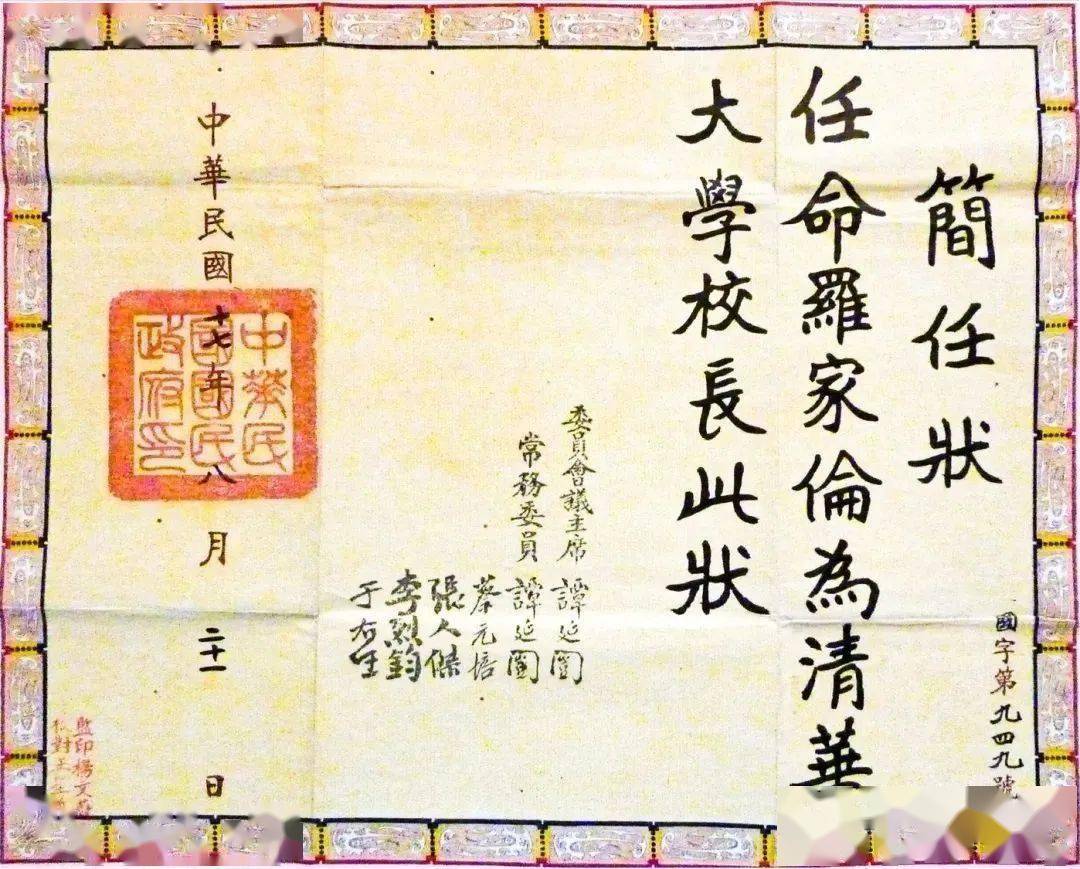 簡任狀
任命羅家倫為清華
大學校長此狀
國字第九四九號
委員會議主席 譚延闓
常務委員 譚延闓
蔡元培
張人傑
李烈鈞
于右任
中華民國十七年八月二十一日
中華民
國國民
政府印
監印楊文
校對王